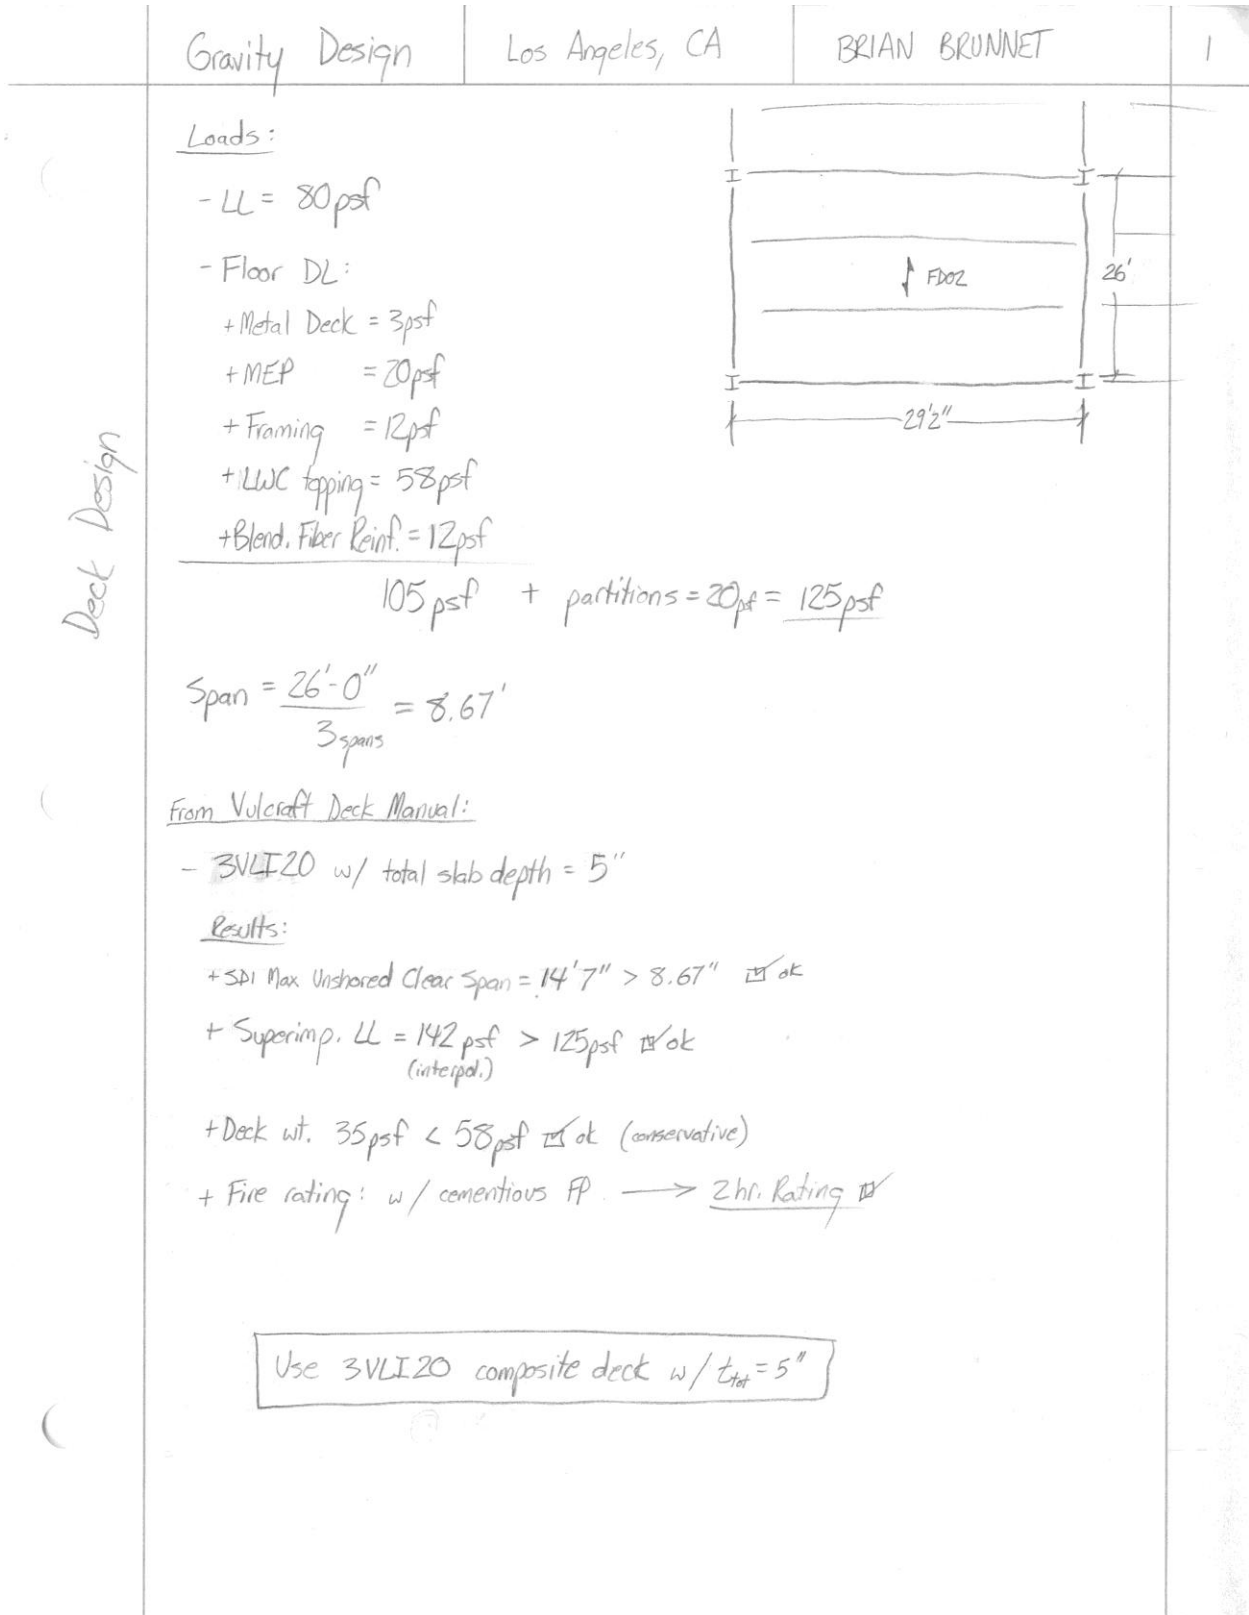 Gravity Design
Los Angeles, CA
BRIAN BRUNNET
1
Deck Design
Loads:
- LL = 80psf
- Floor DL:
+ Metal Deck = 3psf
+ MEP = 20psf
+ Framing = 12psf
+ LWC topping = 58psf
+ Blend. Fiber Reinf. = 12psf
105psf + partitions = 20psf = 125psf
FD02
26'
29'2"
Span = 26'-0" / 3 spans = 8.67'
From Vulcraft Deck Manual:
- 3VLI20 w/ total slab depth = 5"
Results:
+ SDI Max Unshored Clear Span = 14'7" > 8.67" ☑ ok
+ Superimp. LL = 142psf > 125psf ☑ ok
(interpol.)
+ Deck wt. 35psf < 58psf ☑ ok (conservative)
+ Fire rating: w/ cementious FP → 2hr. Rating ☑
Use 3VLI20 composite deck w/ ttot = 5"